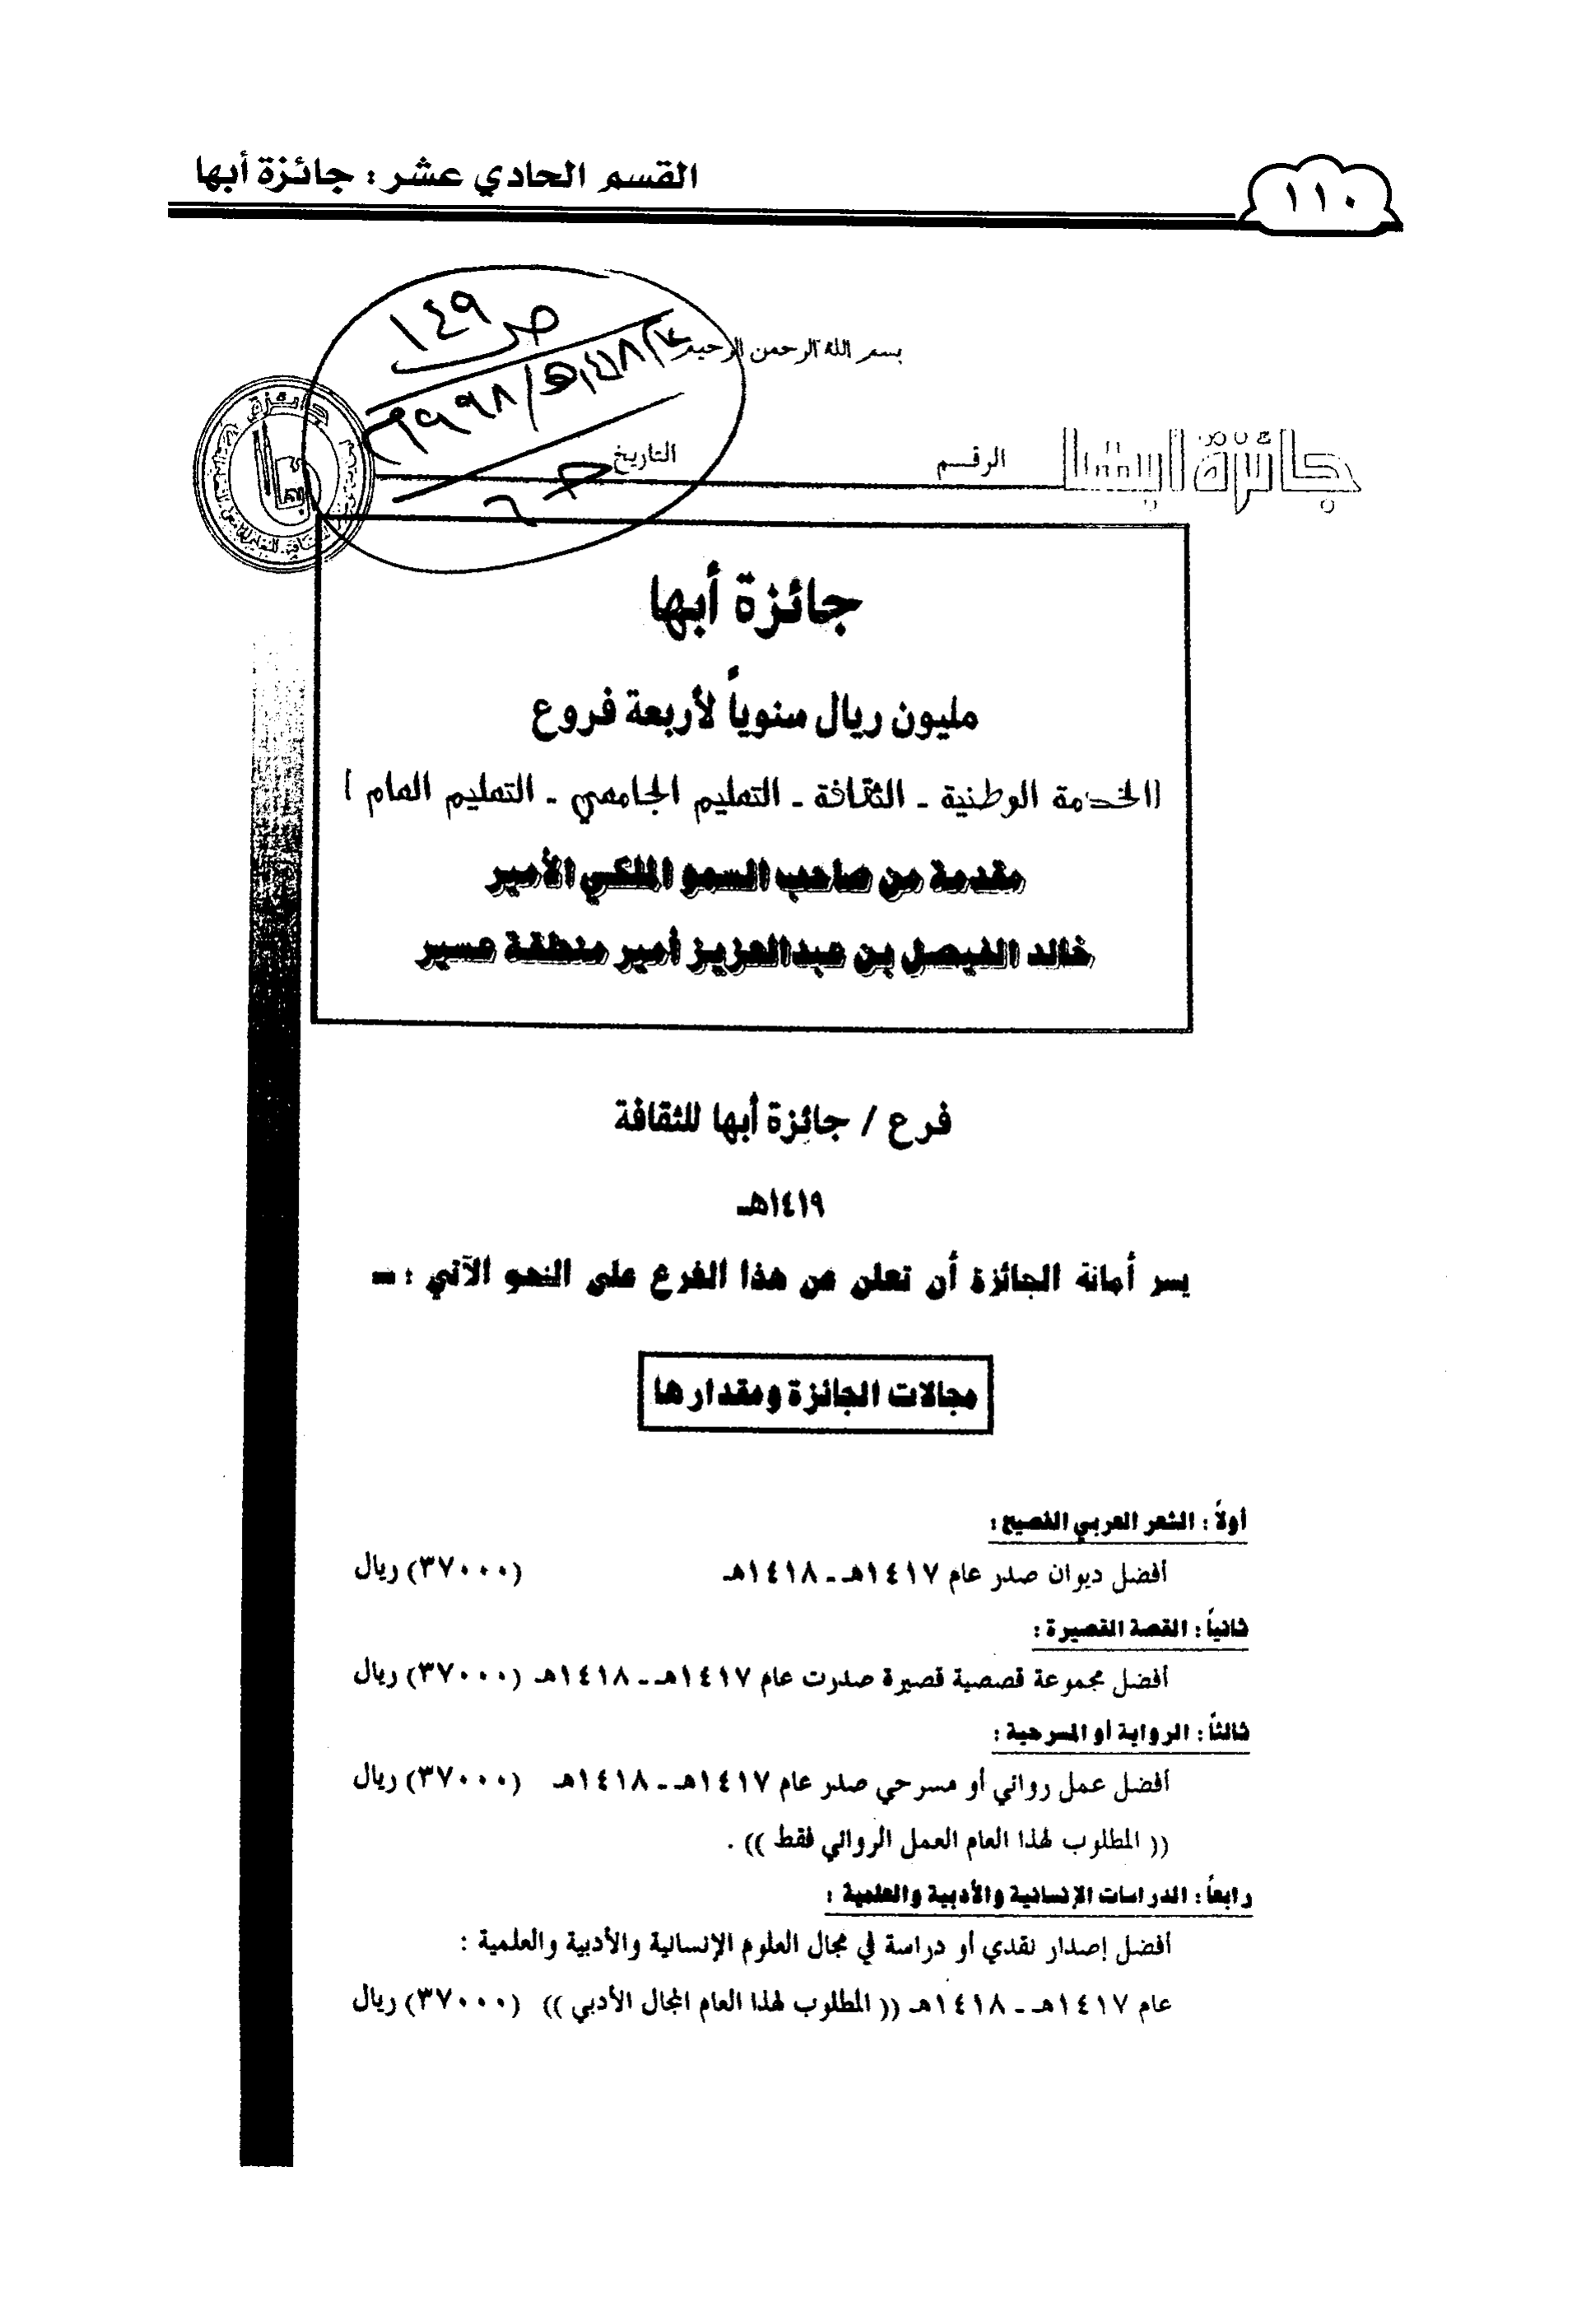 القسم الحادي عشر : جائزة أبها
١١٠
بسم الله الرحمن الرحيم
ص ١٤٩
جائزة أبها
الرقم
التاريخ
جائزة أبها
مليون ريال سنوياً لأربعة فروع
(الخدمة الوطنية ـ الثقافة ـ التعليم الجامعي ـ التعليم العام)
مقدمة من صاحب السمو الملكي الأمير
خالد الفيصل بن عبدالعزيز أمير منطقة عسير
فرع / جائزة أبها للثقافة
١٤١٩هـ
يسر أمانة الجائزة أن تعلن عن هذا الفرع على النحو الآتي : ـ
مجالات الجائزة ومقدارها
أولاً : الشعر العربي الفصيح :
أفضل ديوان صدر عام ١٤١٧هـ ـ ١٤١٨هـ (٣٧٠٠٠) ريال
ثانياً : القصة القصيرة :
أفضل مجموعة قصصية قصيرة صدرت عام ١٤١٧هـ ـ ١٤١٨هـ (٣٧٠٠٠) ريال
ثالثاً : الرواية أو المسرحية :
أفضل عمل روائي أو مسرحي صدر عام ١٤١٧هـ ـ ١٤١٨هـ (٣٧٠٠٠) ريال
(( المطلوب لهذا العام العمل الروائي فقط )) .
رابعاً : الدراسات الإنسانية والأدبية والعلمية :
أفضل إصدار نقدي أو دراسة في مجال العلوم الإنسانية والأدبية والعلمية :
عام ١٤١٧هـ ـ ١٤١٨هـ (( المطلوب لهذا العام المجال الأدبي )) (٣٧٠٠٠) ريال